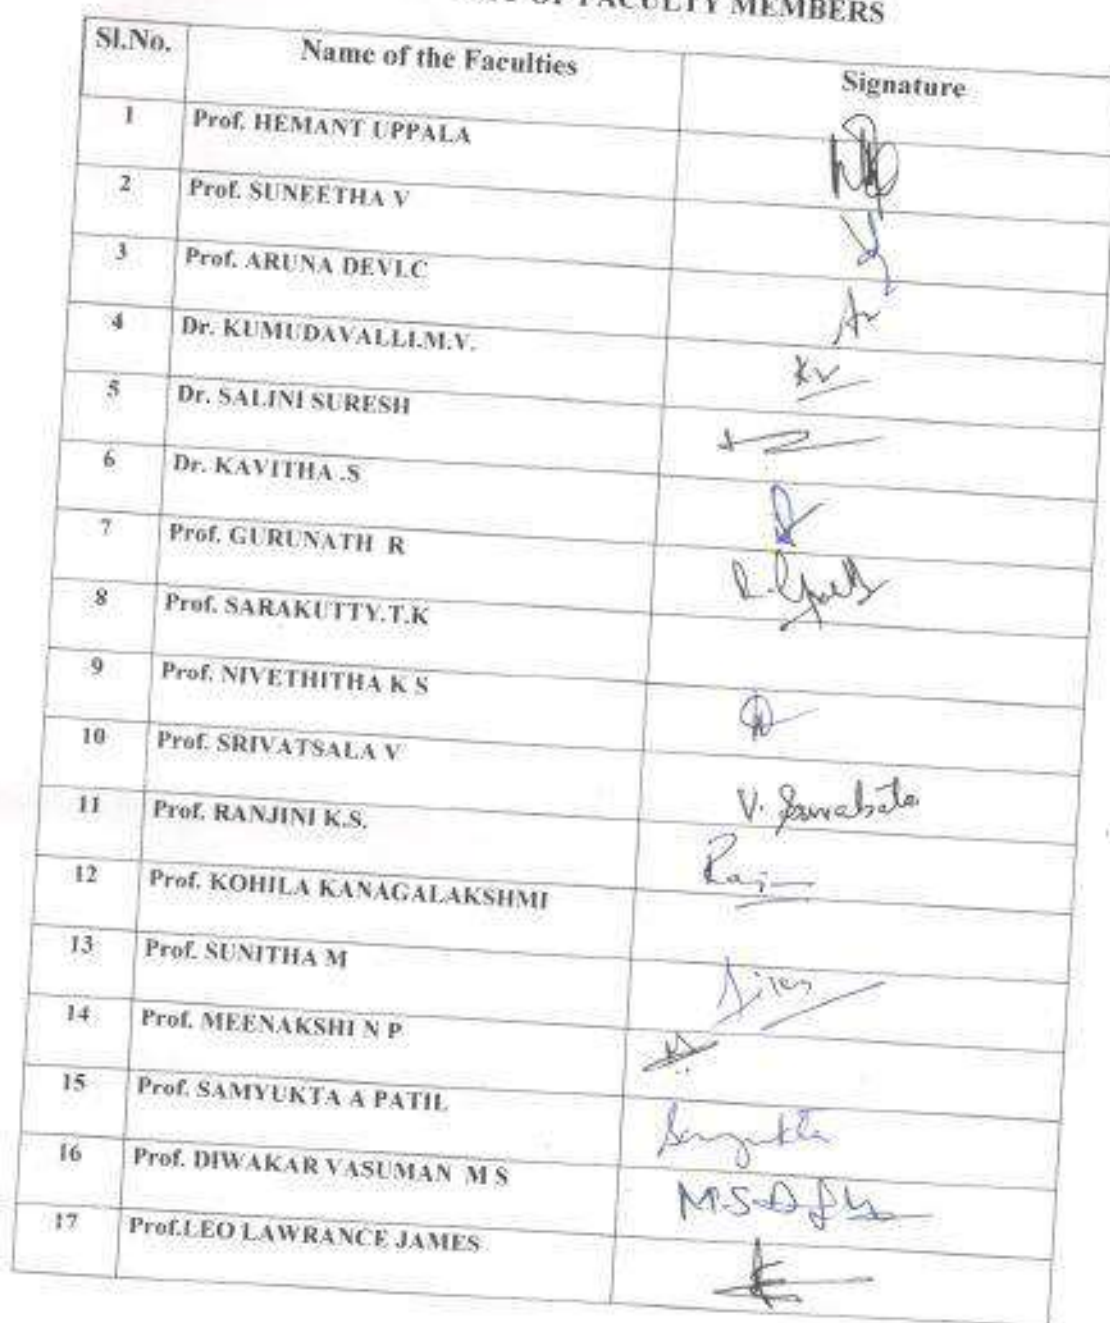 OF FACULTY MEMBERS
Sl.No. Name of the Faculties Signature
1 Prof. HEMANT UPPALA
2 Prof. SUNEETHA V
3 Prof. ARUNA DEVI.C
4 Dr. KUMUDAVALLI.M.V.
5 Dr. SALINI SURESH
6 Dr. KAVITHA .S
7 Prof. GURUNATH R
8 Prof. SARAKUTTY.T.K
9 Prof. NIVETHITHA K S
10 Prof. SRIVATSALA V V.
11 Prof. RANJINI K.S.
12 Prof. KOHILA KANAGALAKSHMI
13 Prof. SUNITHA M
14 Prof. MEENAKSHI N P
15 Prof. SAMYUKTA A PATIL Samyukta
16 Prof. DIWAKAR VASUMAN M S
17 Prof.LEO LAWRANCE JAMES